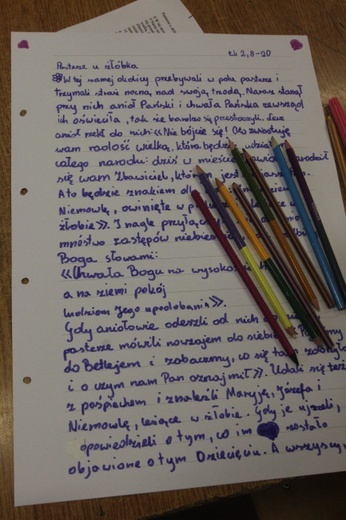 Łk 2, 8-20
Pasterze u żłóbka
W tej samej okolicy przebywali w polu pasterze i
trzymali straż nocną nad swoją trzodą. Naraz stanął
przy nich anioł Pański i chwała Pańska zewsząd
ich oświeciła, tak że bardzo się przestraszyli. Lecz
anioł rzekł do nich: «Nie bójcie się! Oto zwiastuję
wam radość wielką, która będzie udziałem
całego narodu: dziś w mieście Dawida narodził
się wam Zbawiciel, którym jest
A to będzie znakiem dla
Niemowlę, owinięte w
żłobie». I nagle przyłączyło
mnóstwo zastępów niebieskich
Boga słowami:
«Chwała Bogu na wysokościach
a na ziemi pokój
ludziom Jego upodobania».
Gdy aniołowie odeszli od nich
pasterze mówili nawzajem do siebie:
do Betlejem i zobaczmy, co się tam zdarzyło
i o czym nam Pan oznajmił». Udali się też
z pośpiechem i znaleźli Maryję, Józefa i
Niemowlę, leżące w żłobie. Gdy je ujrzeli,
opowiedzieli o tym, co im zostało
objawione o tym Dziecięciu. A wszyscy,